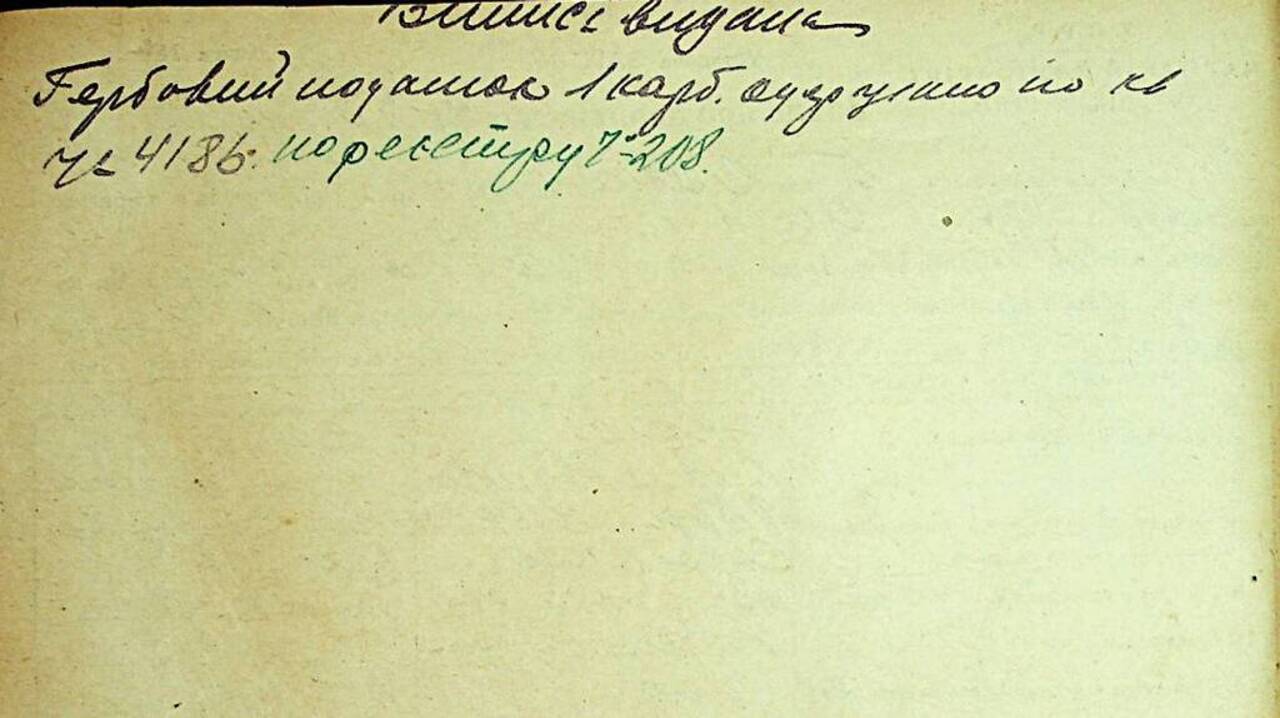 Випись видана
Гербовий податок 1 карб. одержано по кв
Ч 4186. по реєстру Ч-208.